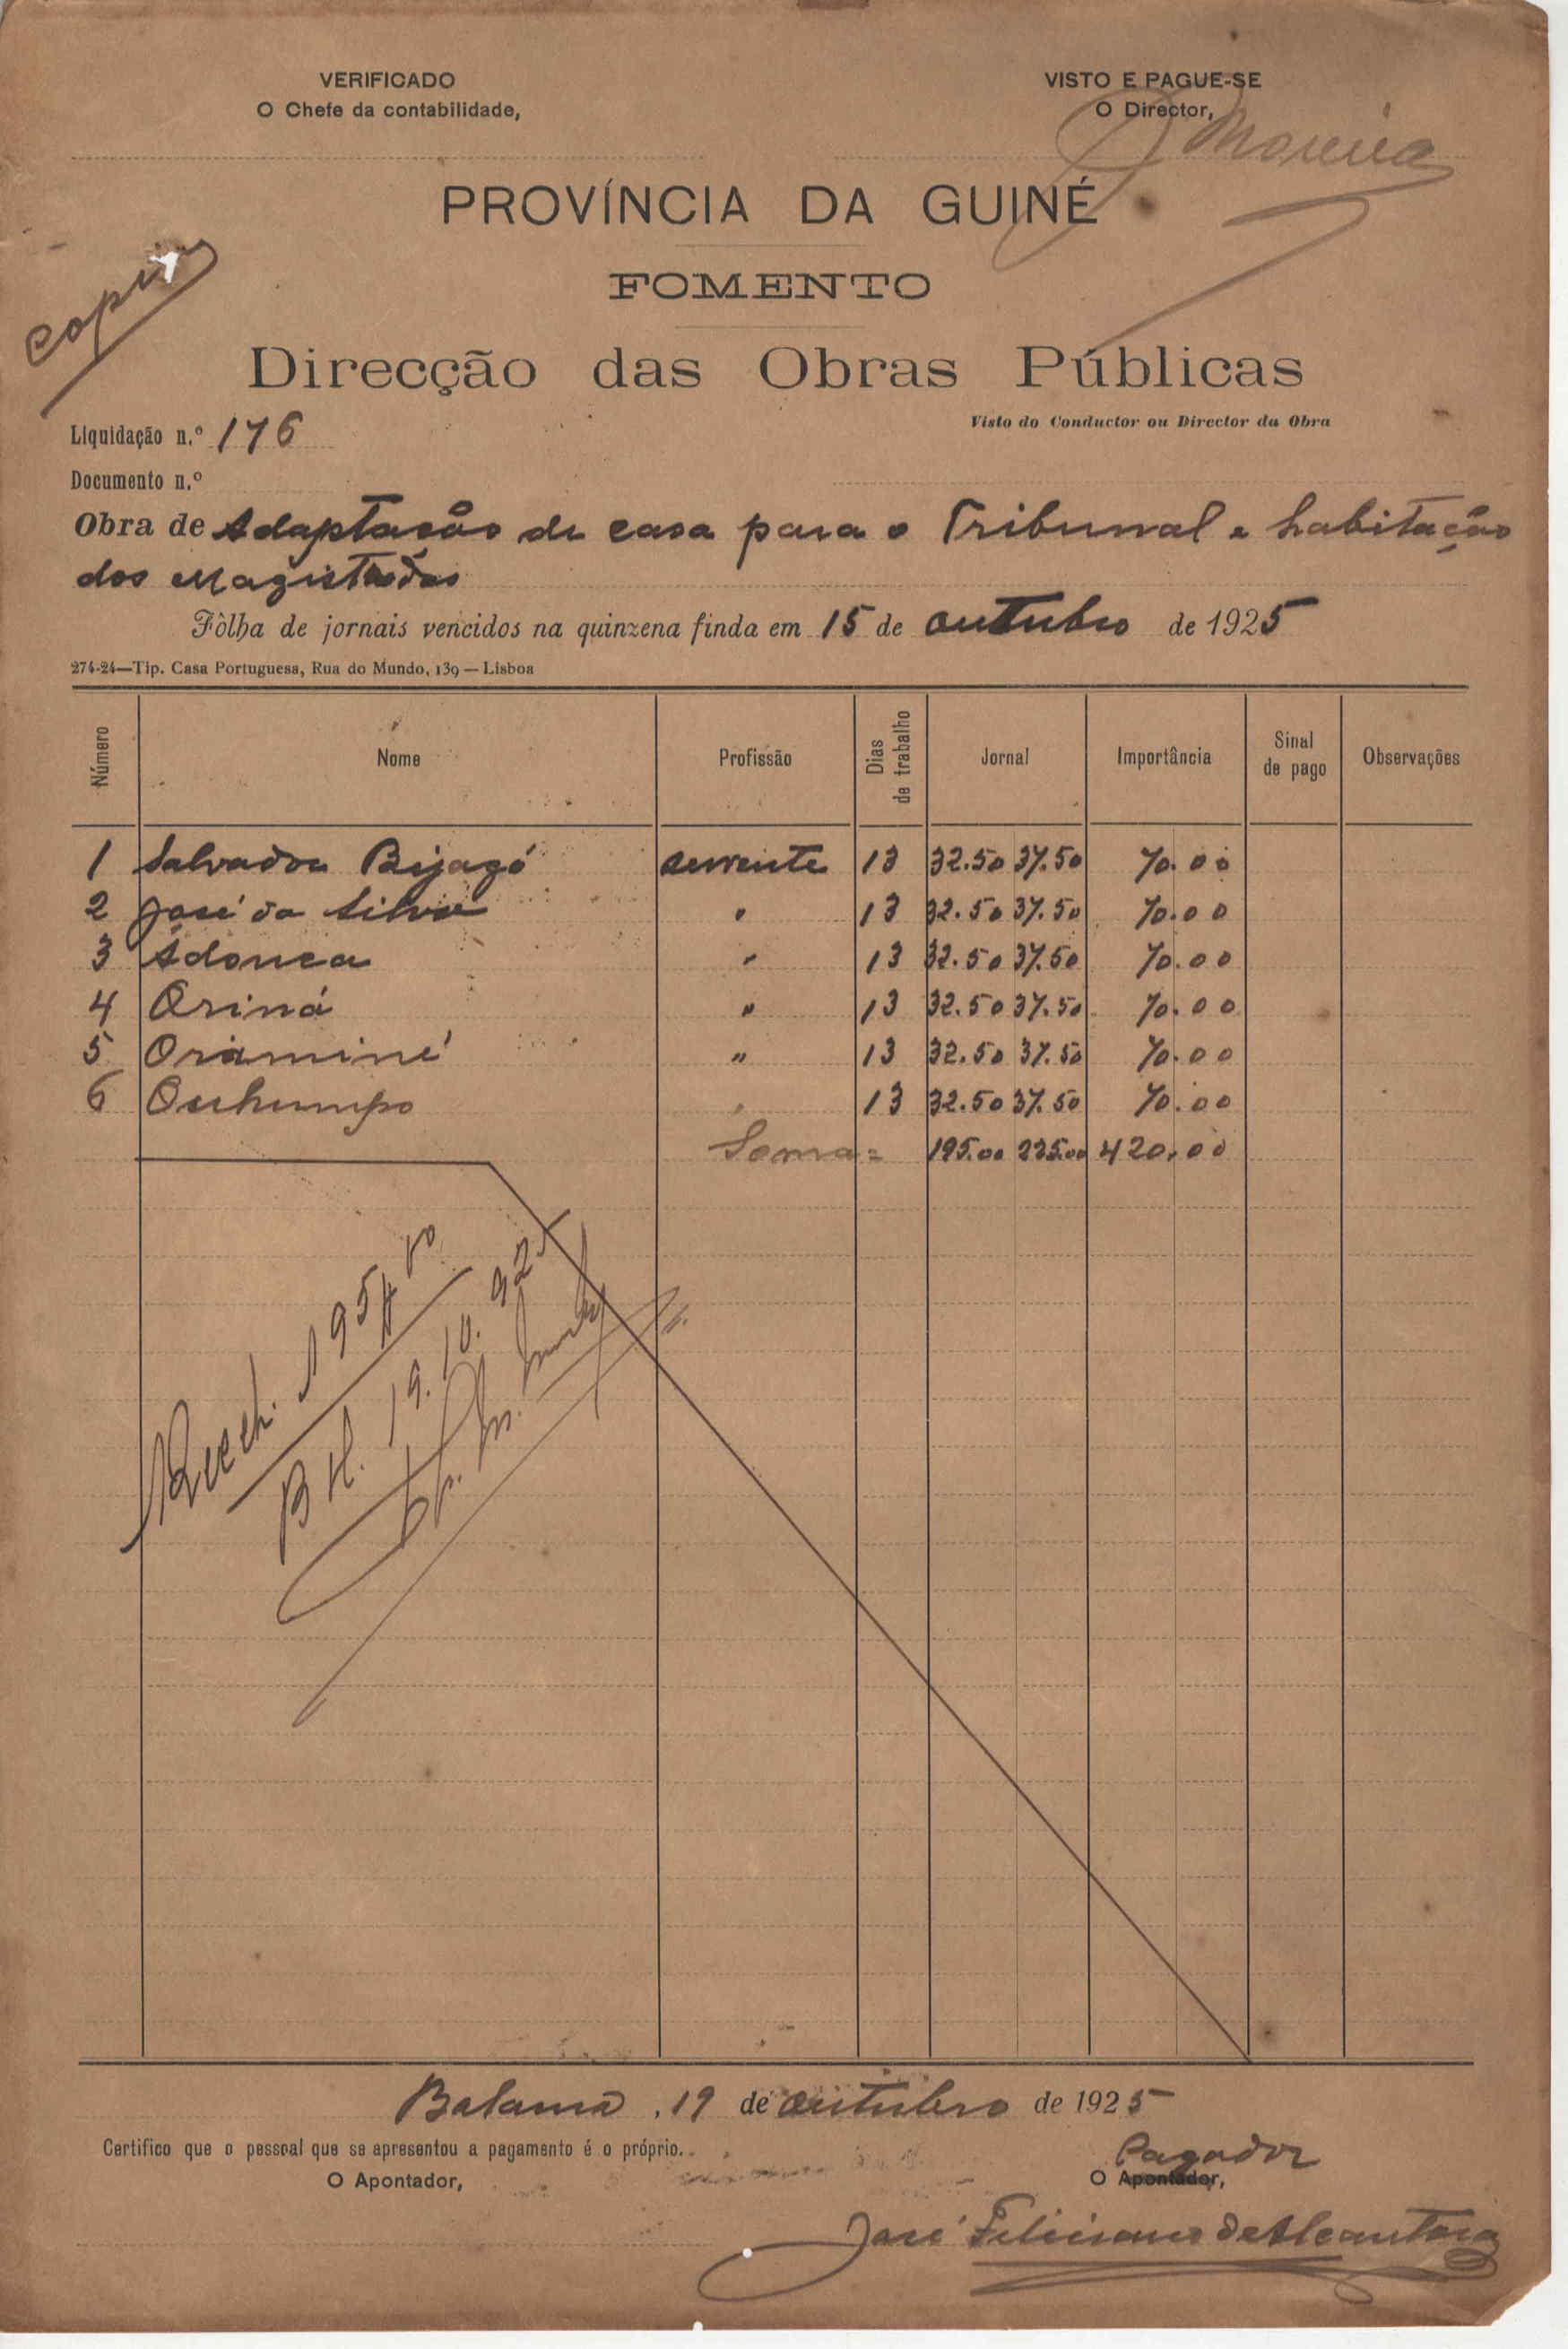 VERIFICADO
O Chefe da contabilidade,
VISTO E PAGUE-SE
O Director,
Moreira
PROVÍNCIA DA GUINÉ
FOMENTO
Direcção das Obras Públicas
copia
Liquidação n.º 176
Visto do Conductor ou Director da Obra
Documento n.º
Obra de Adaptação de casa para o Tribunal e habitação
dos Magistrados
Fôlha de jornais vencidos na quinzena finda em 15 de outubro de 1925
274-24—Tip. Casa Portuguesa, Rua do Mundo, 139 — Lisboa
Número Nome Profissão Dias de trabalho Jornal Importância Sinal de pago Observações
1 Salvador Bijagó servente 13 32.50 37.50 70.00
2 José da Silva " 13 32.50 37.50 70.00
3 Adonca " 13 32.50 37.50 70.00
4 Oriná " 13 32.50 37.50 70.00
5 Oraminé " 13 32.50 37.50 70.00
6 13 32.50 37.50 70.00
Soma = 195.00 225.00 420.00
195$00
19.10.925
Bolama, 19 de outubro de 1925
Certifico que o pessoal que se apresentou a pagamento é o próprio.
Pagador
O Apontador,
O Apontador,
José Feliciano de Alcantara